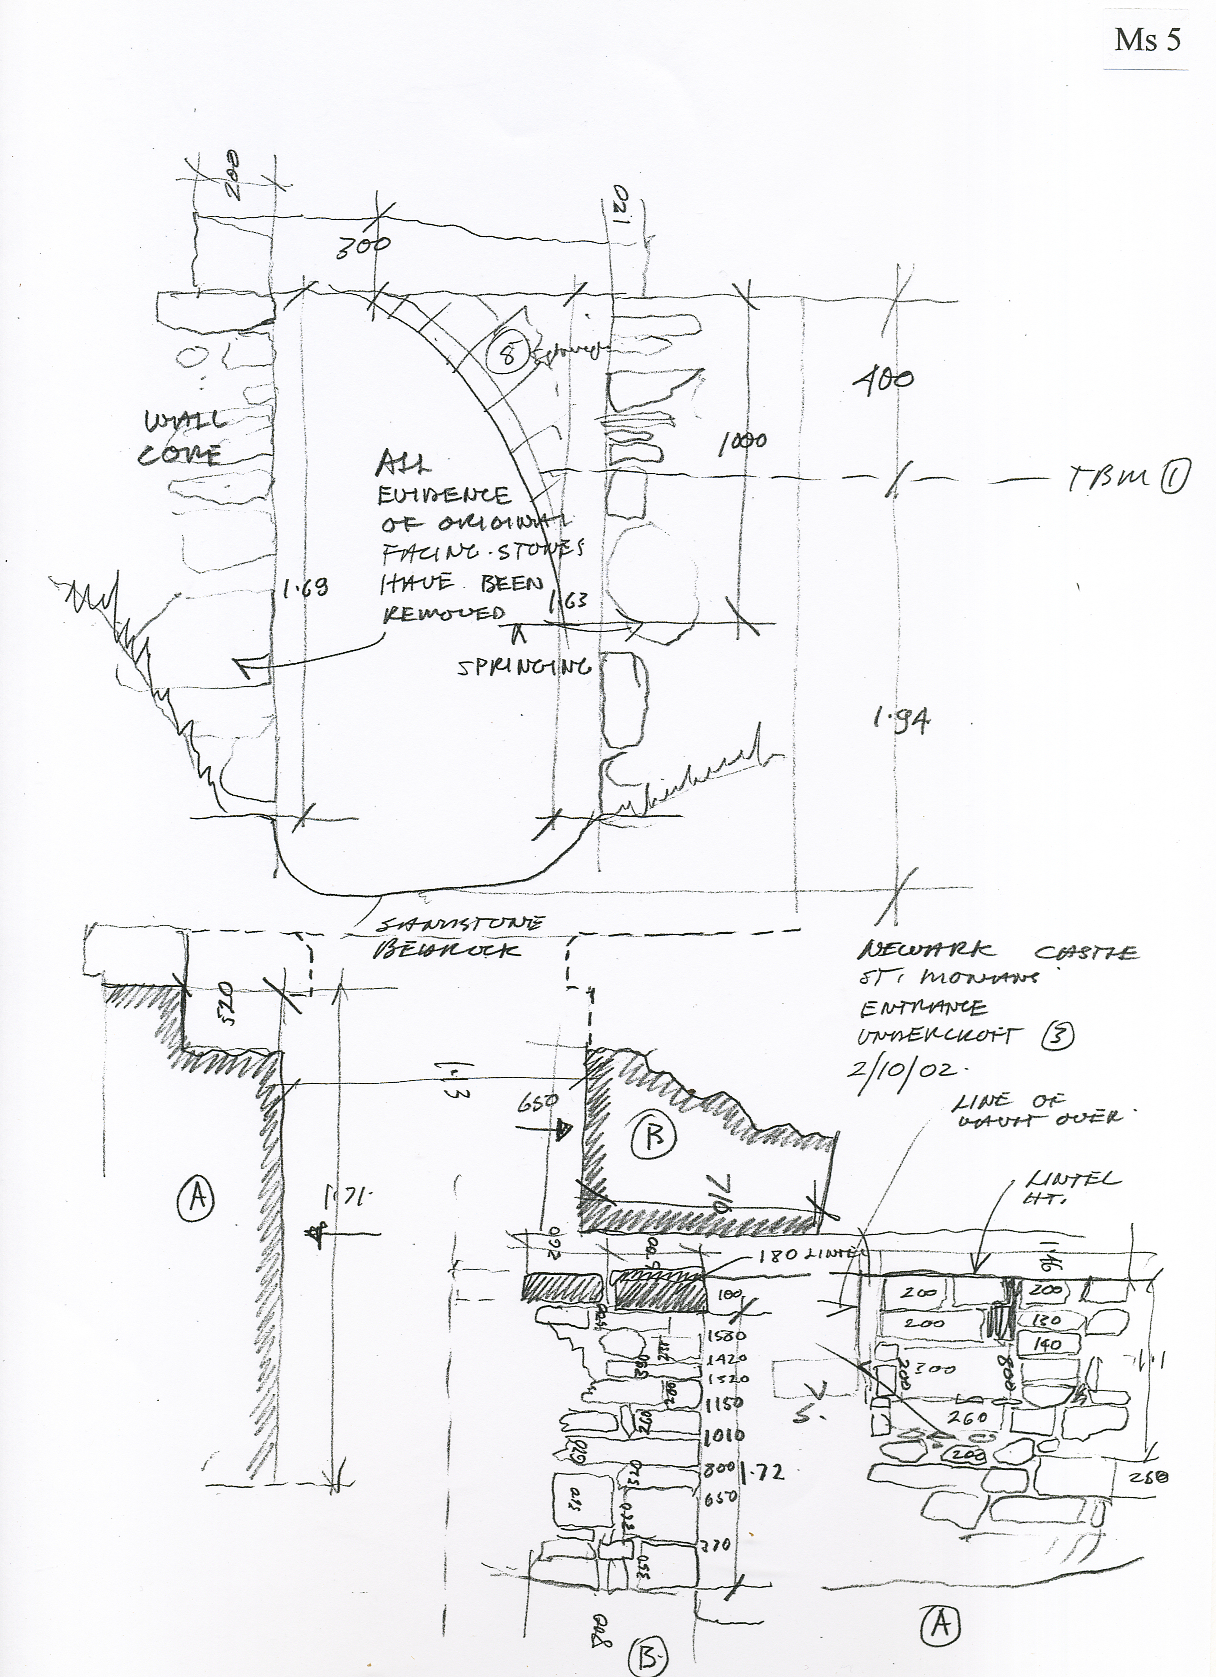 Ms 5
200
120
300
8
400
WALL
CORE
1000
ALL
EVIDENCE
OF ORIGINAL
FACING STONES
HAVE BEEN
REMOVED
TBM 1
1.69
1.63
SPRINGING
1.94
SANDSTONE
BEDROCK
NEWARK CASTLE
ST. MONANS
ENTRANCE
UNDERCROFT 3
2/10/02.
520
1.13
650
LINE OF
VAULT OVER.
B
A
1.71.
710
LINTEL
HT.
260
180 LINTEL
1.16
100
200
200
1580
200
130
1420
140
1320
200
300
800
1.1
1150
S.
260
1010
200
800
1.72
250
650
330
A
B